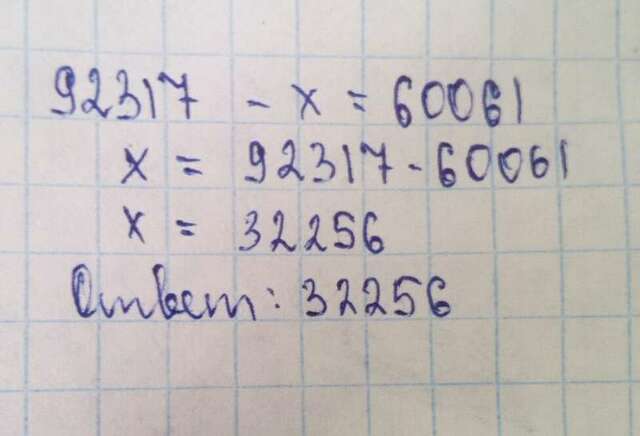 92317 - x = 60061
x = 92317 - 60061
x = 32256
Ответ: 32256